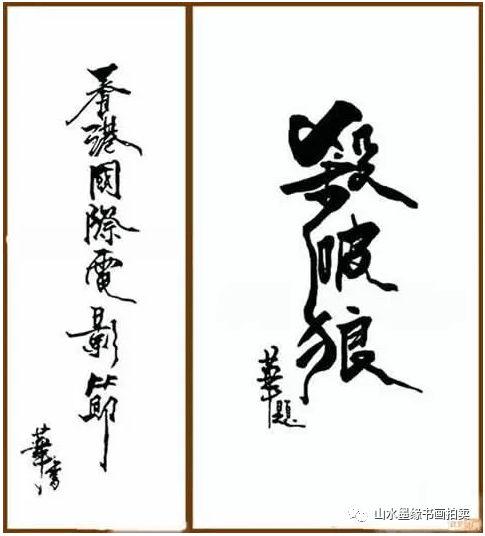 香港國際電影節
華書
殺破狼
華題
山水墨缘书画拍卖